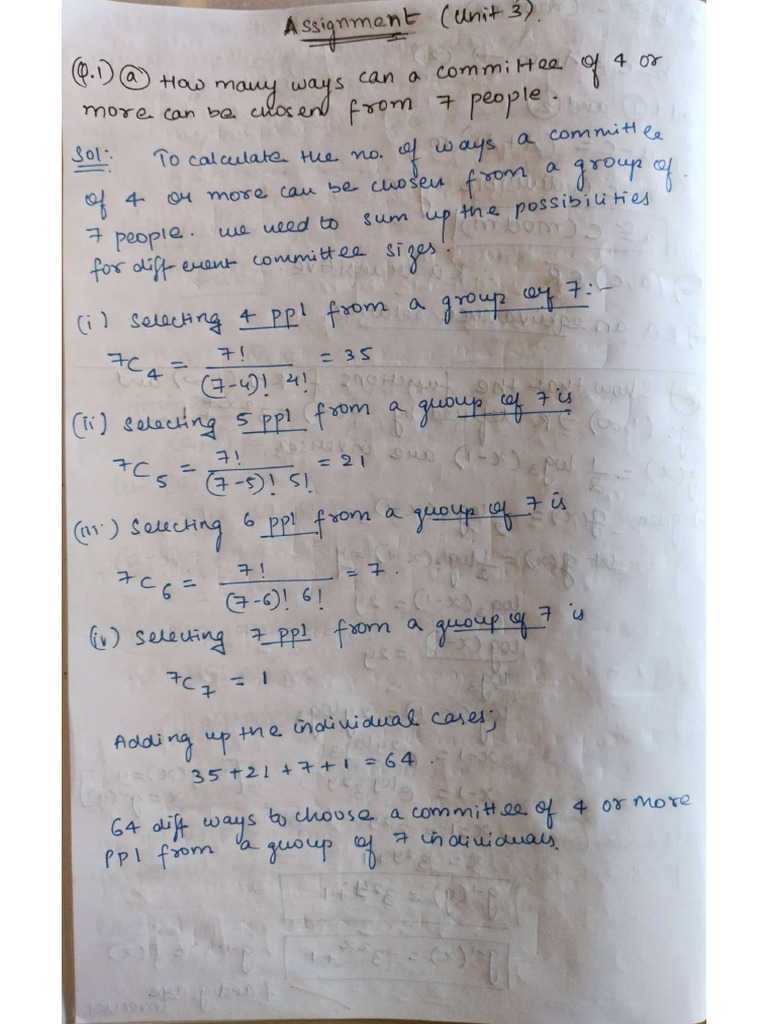 Assignment (Unit 3).
Q.1) (a) How many ways can a committee of 4 or
more can be chosen from 7 people.
Sol: To calculate the no. of ways a committee
of 4 or more can be chosen from a group of
7 people. we need to sum up the possibilities
for different committee sizes.
(i) Selecting 4 ppl from a group of 7:-
7C4 = 7! / (7-4)! 4! = 35
(ii) Selecting 5 ppl from a group of 7 is
7C5 = 7! / (7-5)! 5! = 21
(iii) Selecting 6 ppl from a group of 7 is
7C6 = 7! / (7-6)! 6! = 7.
(iv) Selecting 7 ppl from a group of 7 is
7C7 = 1
Adding up the individual cases;
35+21+7+1 = 64.
64 diff ways to choose a committee of 4 or more
ppl from a group of 7 individuals.